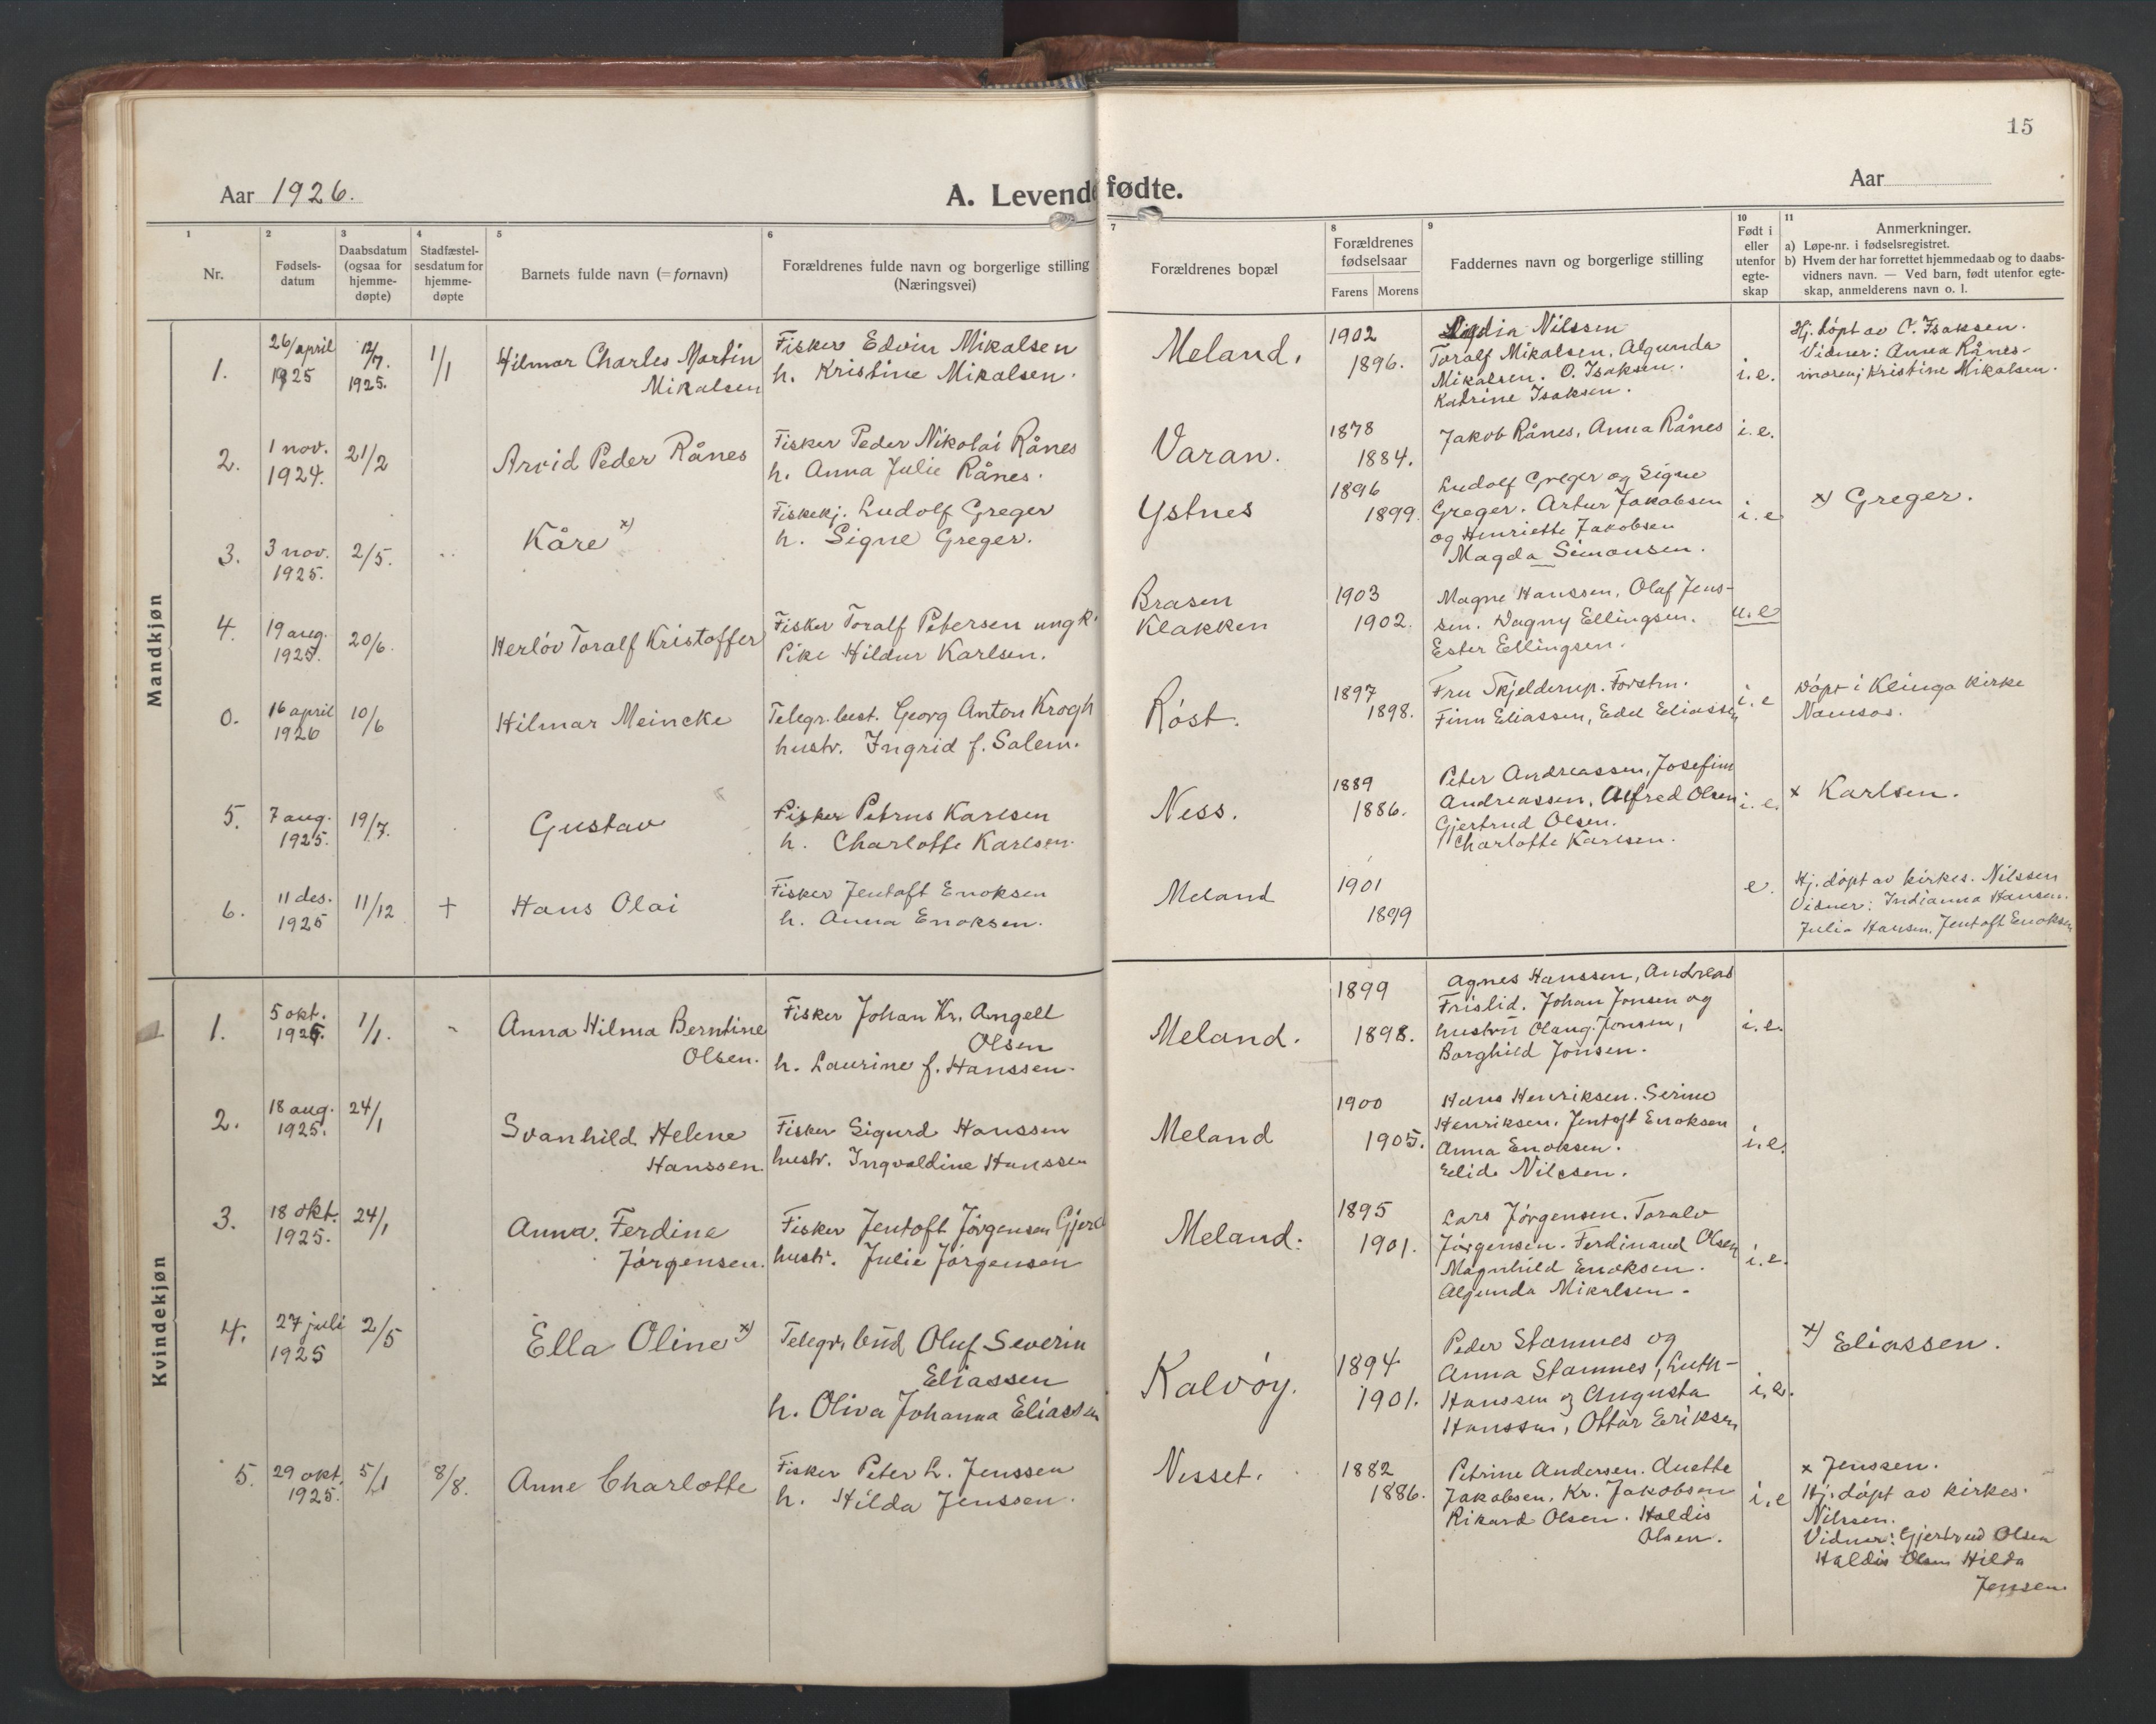 15
Aar 1926.
A. Levende fødte.
Aar
1
2
3
4
5
6
7
8
9
10
11
Nr.
Fødsels-
datum
Daabsdatum
(ogsaa for
hjemme-
døpte)
Stadfæstel-
sesdatum for
hjemme-
døpte
Barnets fulde navn (=fornavn)
Forældrenes fulde navn og borgerlige stilling
(Næringsvei)
Forældrenes bopæl
Forældrenes
fødselsaar
Farens
Morens
Faddernes navn og borgerlige stilling
Født i
eller
utenfor
egte-
skap
Anmerkninger.
a) Løpe-nr. i fødselsregistret.
b) Hvem der har forrettet hjemmedaab og to daabs-
vidners navn. — Ved barn, født utenfor egte-
skap, anmelderens navn o. l.
Mandkjøn
1.
26/april
1925
12/7.
1925.
1/1
Hilmar Charles Martin
Mikalsen
Fisker Edvin Mikalsen
h. Kristine Mikalsen.
Meland.
1902
1896.
Lydia Nilssen
Toralf Mikalsen, Algunda
Mikalsen. O. Isaksen.
Katrine Isaksen.
i.e.
Hj. døpt av O. Isaksen.
Vidner: Anna Rånes-
moren, Kristine Mikalsen.
2.
1 nov.
1924.
21/2
Arvid Peder Rånes
Fisker Peder Nikolai Rånes
h. Anna Julie Rånes.
Varan.
1878
1884.
Jakob Rånes, Anna Rånes
i.e.
3.
3 nov.
1925.
2/5.
Kåre x)
Fiskekj. Ludolf Greger
h. Signe Greger.
Ystnes
1896
1899.
Ludolf Greger og Signe
Greger. Artur Jakobsen
og Henriette Jakobsen
Magda Simonsen.
i.e
x) Greger.
4.
19 aug.
1925.
20/6.
Herlöv Toralf Kristoffer
Fisker Toralf Petersen ungk.
Pike Hildur Karlsen.
Brasen
Klakken
1903
1902.
Magne Hanssen, Olaf Jens-
sen. Dagny Ellingsen.
Ester Ellingsen.
u.e
0.
16 april
1926
10/6
Hilmar Meincke
Telegr.best. Georg Anton Krogh
hustr. Ingrid f. Salem.
Røst.
1897
1898.
Fru Skjelderup. Forstm.
Finn Eliassen, Edel Eliassen
i.e
Døpt i Klinga kirke
Namsos.
5.
7 aug.
1925.
19/7.
Gustav
Fisker Petrus Karlsen
h. Charlotte Karlsen.
Ness.
1889
1886.
Peter Andreassen, Josefine
Andreassen, Alfred Olsen
Gjertrud Olsen.
Charlotte Karlsen.
i.e.
x Karlsen.
6.
11 des.
1925
11/12
+
Hans Olai
Fisker Jentoft Enoksen
h. Anna Enoksen.
Meland
1901
1899
e.
Hj. døpt av kirkes. Nilssen
Vidner: Indianna Hansen.
Julia Hansen, Jentoft Enoksen
Kvindekjøn
1.
5 okt.
1925.
1/1.
Anna Hilma Berntine
Olsen.
Fisker Johan Kr. Angell
Olsen
h. Laurine f. Hanssen.
Meland.
1899
1898.
Agnes Hanssen, Andreas
Frislid. Johan Jonsen og
hustru Olaug. Jonsen,
Borghild Jonsen.
i.e.
2.
18 aug.
1925.
24/1
Svanhild Helene
Hanssen.
Fisker Sigurd Hanssen
hustr. Ingvaldine Hanssen
Meland
1900
1905.
Hans Henriksen. Serine
Henriksen, Jentoft Enoksen
Anna Enoksen.
Elida Nilssen.
i.e.
3.
18 okt.
1925.
24/1
Anna. Ferdine
Jørgensen.
Fisker Jentoft Jørgensen
hustr. Julie Jørgensen
Meland.
1895
1901.
Lars Jørgensen. Toralv
Jørgensen. Ferdinand Olsen
Magnhild Enoksen.
Algunda Mikalsen.
i.e.
4.
27 juli
1925
2/5
Ella Oline x)
Telegr. bud Oluf Severin
Eliassen
h. Oliva Johanna Eliassen
Kalvøy.
1894
1901.
Peder Stamnes og
Anna Stamnes, Luth-
Hanssen og Augusta
Hanssen, Ottar Eriksen
i.e.
x) Eliassen.
5.
29 okt.
1925.
5/1
8/8.
Anne Charlotte
Fisker Peter L. Jenssen
h. Hilda Jenssen.
Nesset.
1882
1886.
Petrine Andersen. Anette
Jakobsen, Kr. Jakobsen
Rikard Olsen. Haldis
Olsen.
i.e
x Jenssen.
Hj. døpt av kirkes.
Nilssen.
Vidner: Gjertrud Olsen
Haldis Olsen Hilda
Jensen.